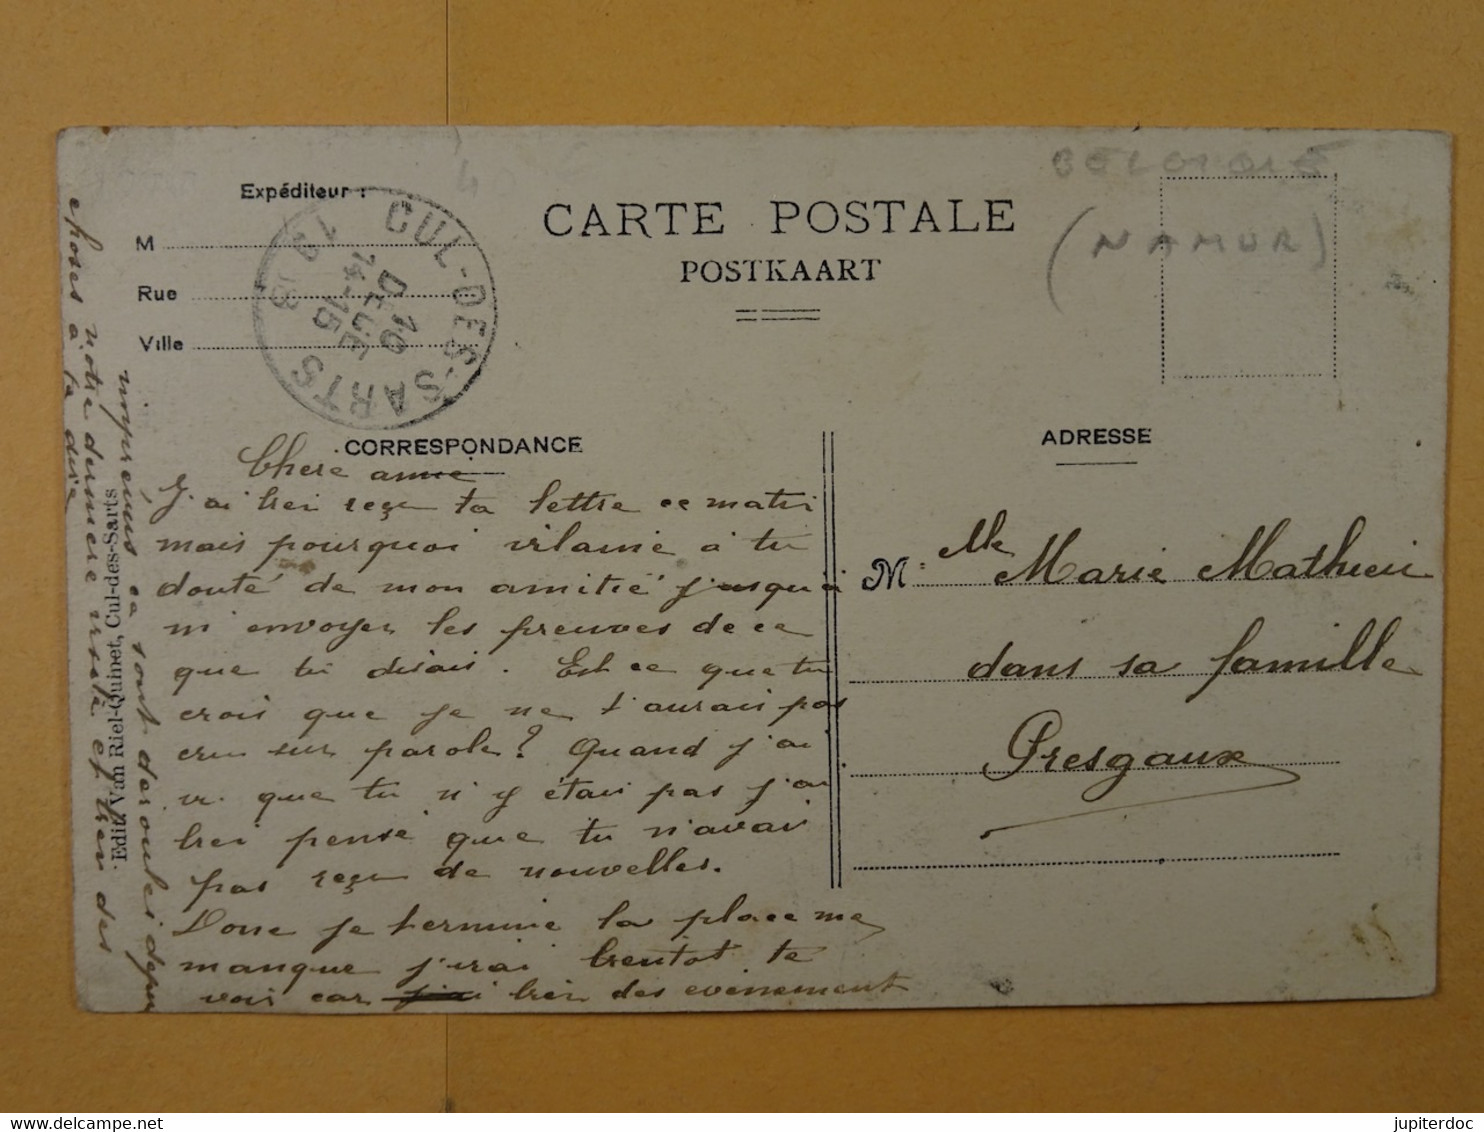 BELGIQUE
(NAMUR)
4
Expéditeur :
M
Rue
Ville
CUL-DES-SARTS
10
DEC
14-15
1913
CARTE POSTALE
POSTKAART
CORRESPONDANCE
ADRESSE
Chere amie
J'ai bien reçu ta lettre ce matin
mais pourquoi vilaine à tu
douté de mon amitié jusqu'à
m'envoyer les preuves de ce
que tu disais. Est ce que tu
crois que je ne t'aurais pas
cru sur parole? Quand j'ai
vu que tu n'y étais pas j'ai
bien pensé que tu n'avais
pas reçu de nouvelles.
Donc je termine la place me
manque j'irai bientot te
voir car j'ai bien des evenement
imprévus ce sont deroulés depuis
notre derniere visite et bien des
choses à te dire
Edit. Van Riel-Quinet, Cul-des-Sarts
M elle Marie Mathieu
dans sa famille
Presgaux
www.delcampe.net
jupiterdoc